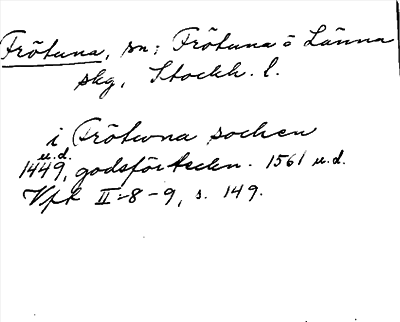 Frötuna, sn; Frötuna o Länna
skg, Stockh. l.
i Frötwna sochen
u.d.
1449, godsförteckn. 1561 u.d.
Vfk II:8-9, s. 149.